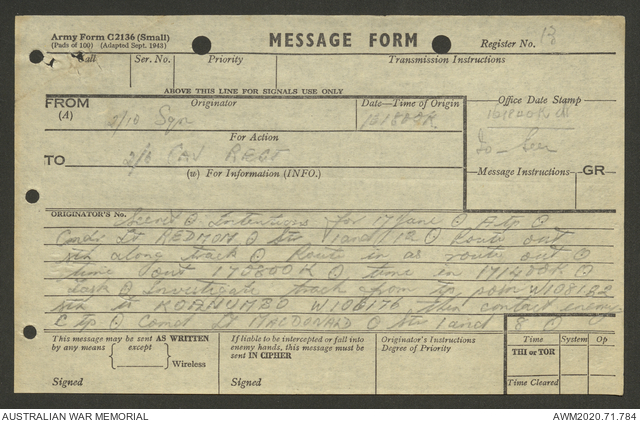 Army Form C2136 (Small)
(Pads of 100) (Adapted Sept. 1943)
MESSAGE FORM
Register No. 18
Call Ser. No. Priority Transmission Instructions
ABOVE THIS LINE FOR SIGNALS USE ONLY
FROM
(A)
Originator
Date—Time of Origin
Office Date Stamp
2/10 Sqn
161800K
For Action
TO
2/10 CAV REGT
(w) For Information (INFO.)
Message Instructions GR
ORIGINATOR'S No.
Secret ⊙ Intentions for 17 June ⊙ A tp ⊙
Comd Lt REDMOND ⊙ 1 and 12 ⊙ Route out
along track ⊙ Route in as route out ⊙
time out 170800K ⊙ time in 171400K ⊙
Task ⊙ Investigate track from tp posn W108182
to KOANUMBO W106176 then contact enemy
C tp ⊙ Comd Lt MACDONALD ⊙ 1 and 8 ⊙
This message may be sent AS WRITTEN
by any means except
Wireless
Signed
If liable to be intercepted or fall into
enemy hands, this message must be
sent IN CIPHER
Signed
Originator's Instructions
Degree of Priority
Time System Op
THI or TOR
Time Cleared
AUSTRALIAN WAR MEMORIAL
AWM2020.71.784